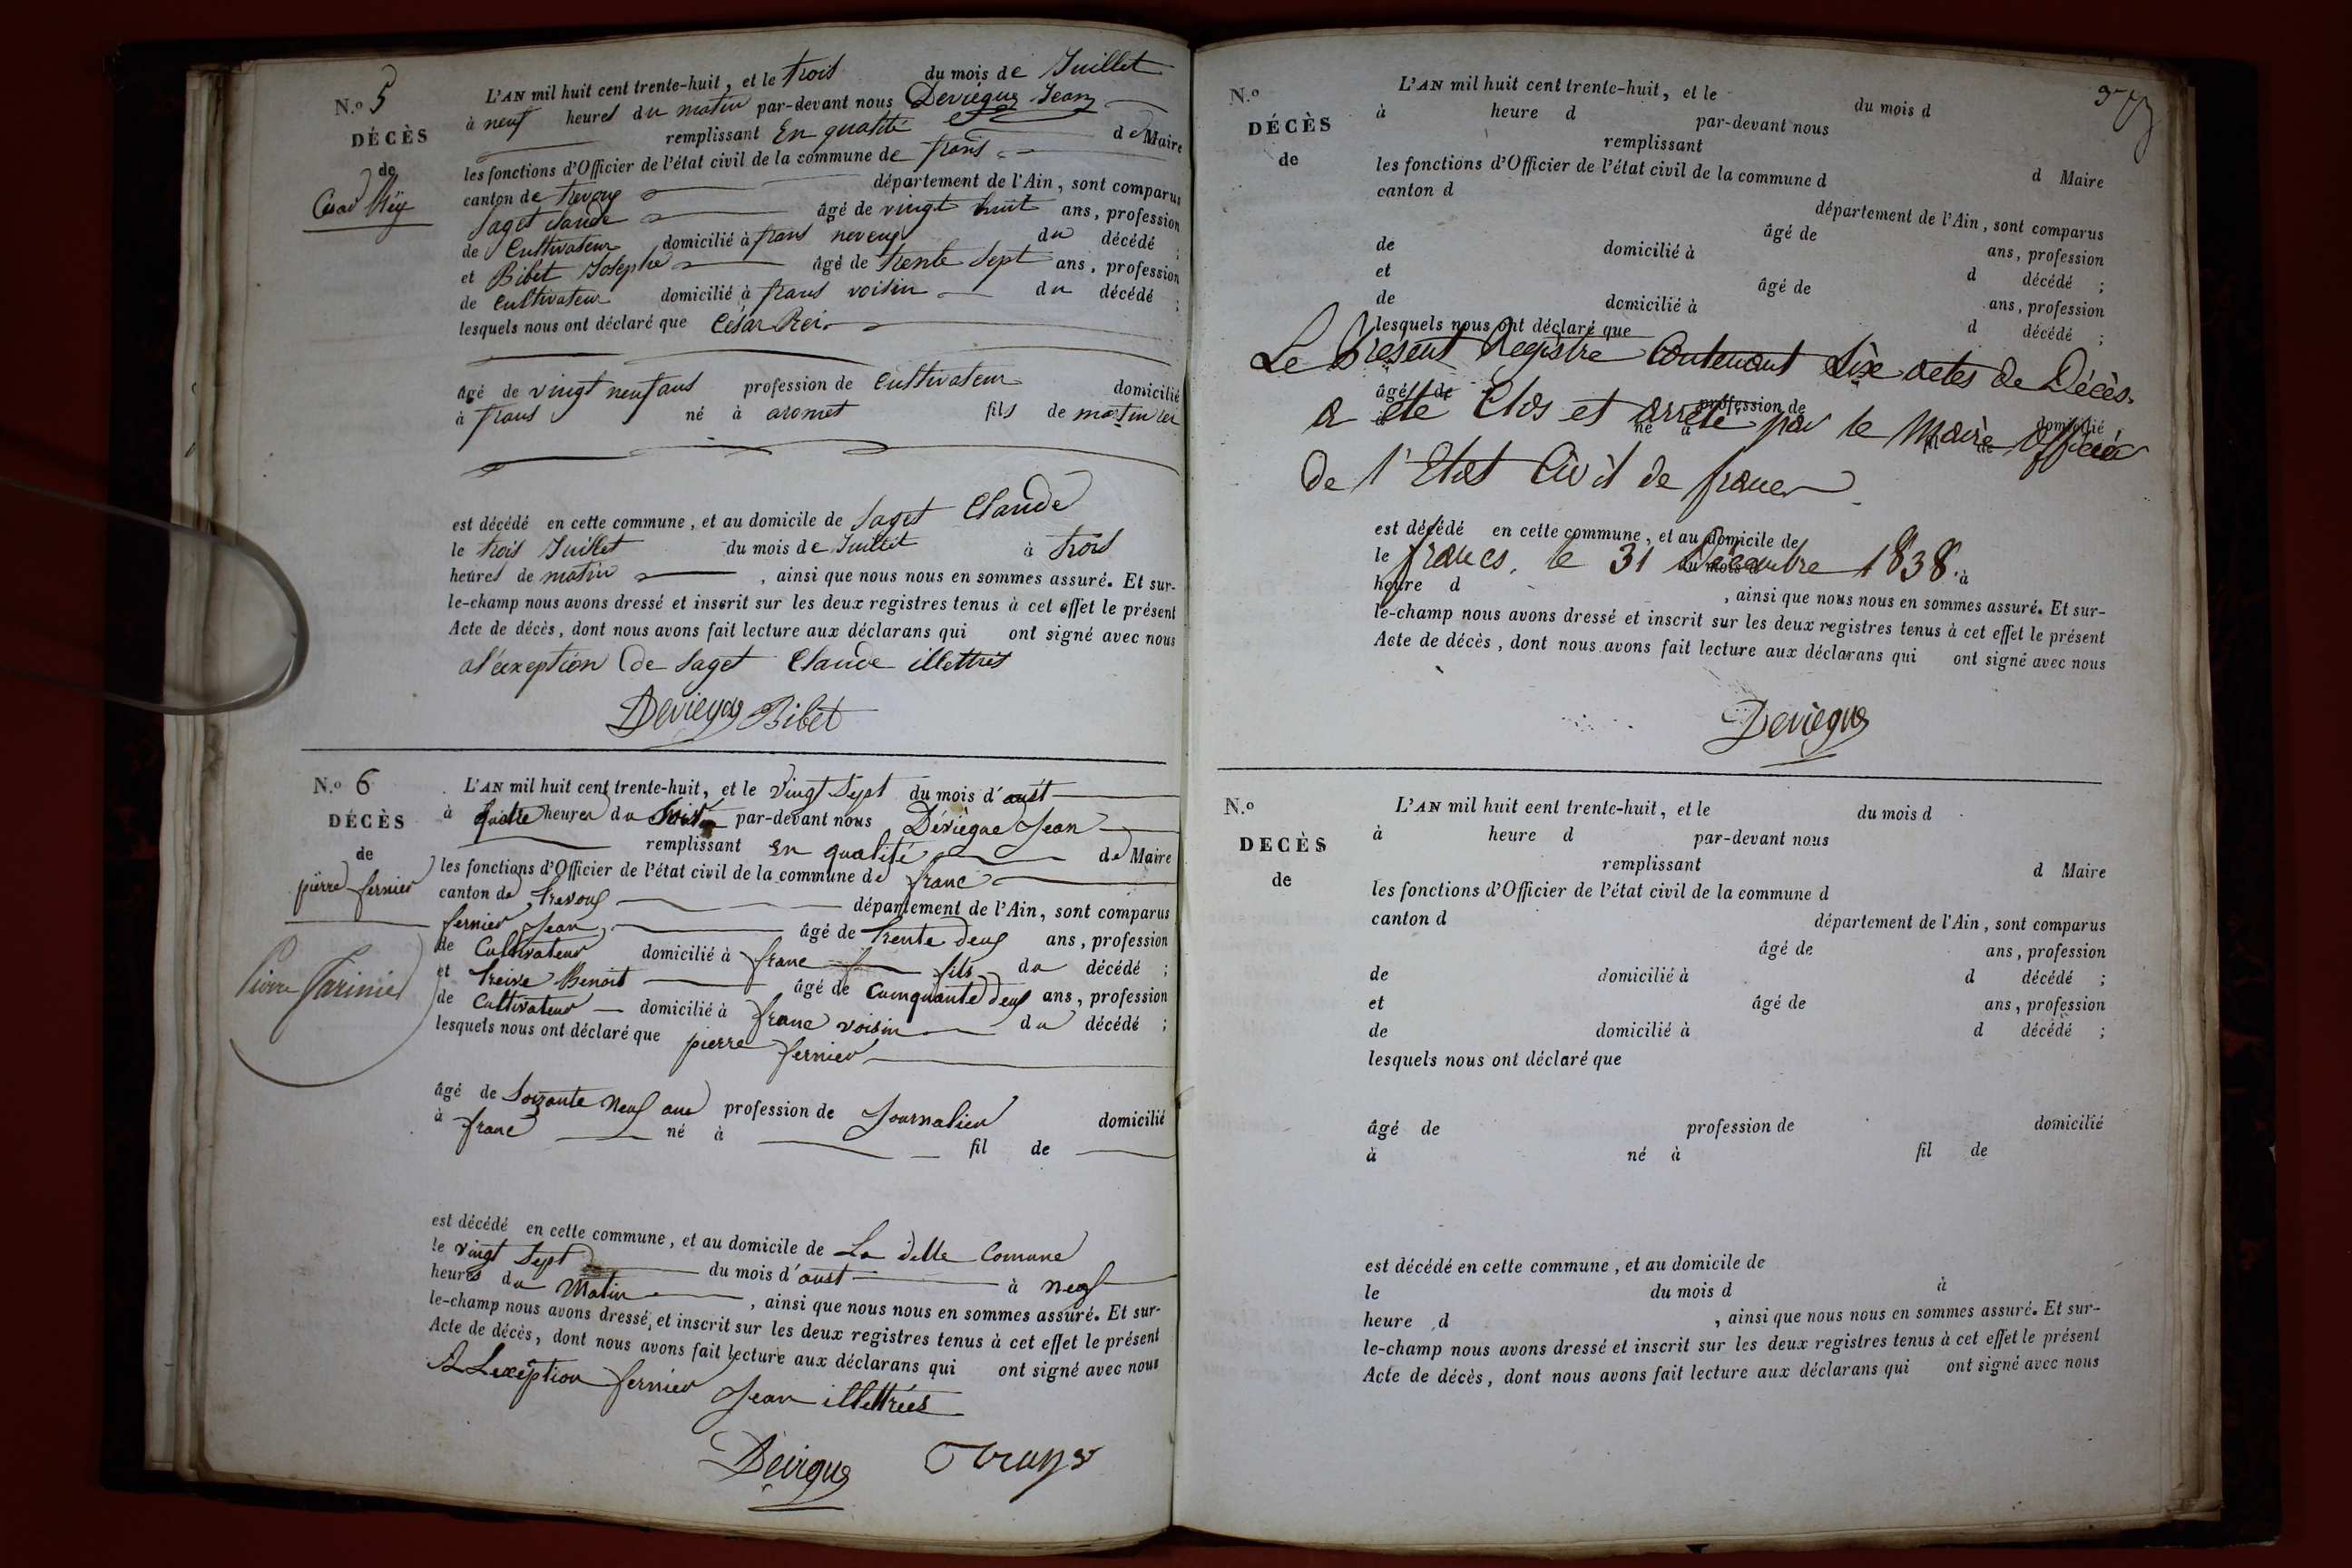 N.º 5
DÉCÈS
de
Cesar Rey
L'AN mil huit cent trente-huit, et le trois du mois de Juillet
à neuf heures du matin par-devant nous Deviegue Jean
remplissant En qualité de Maire
les fonctions d'Officier de l'état civil de la commune de frans
canton de trevoux département de l'Ain, sont comparus
Saget Claude âgé de vingt huit ans, profession
de Cultivateur domicilié à frans neveux du décédé ;
et Bibet Josephe âgé de trente Sept ans, profession
de cultivateur domicilié à frans voisin du décédé ;
lesquels nous ont déclaré que César Rei
âgé de vingt neuf ans profession de Cultivateur domicilié
à frans né à aromet fils de martin rei
est décédé en cette commune, et au domicile de Saget Claude
le trois Juillet du mois de Juillet à trois
heures de matin , ainsi que nous nous en sommes assuré. Et sur-
le-champ nous avons dressé et inscrit sur les deux registres tenus à cet effet le présent
Acte de décès, dont nous avons fait lecture aux déclarans qui ont signé avec nous
a l'exeption de Saget Claude illettris
Deviegue Bibet
N.º 6
DÉCÈS
de
pierre fernier
Pierre Farinier
L'AN mil huit cent trente-huit, et le vingt Sept du mois d'aust
à heures du Soir par-devant nous Déviegue Jean
remplissant en qualité de Maire
les fonctions d'Officier de l'état civil de la commune de franc
canton de trevoux département de l'Ain, sont comparus
fernier Jean âgé de trente deux ans, profession
de Cultivateur domicilié à franc fils du décédé ;
et treive Benoit âgé de Cuinquante deux ans, profession
de Cultivateur domicilié à franc voisin du décédé ;
lesquels nous ont déclaré que pierre fernier
âgé de Soixante Neuf ans profession de Journalier domicilié
à franc né à fil de
est décédé en cette commune, et au domicile de La ditte Comune
le vingt Sept du mois d'aust à neuf
heures du Matin , ainsi que nous nous en sommes assuré. Et sur-
le-champ nous avons dressé et inscrit sur les deux registres tenus à cet effet le présent
Acte de décès, dont nous avons fait lecture aux déclarans qui ont signé avec nous
A Lexeption fernier Jean illettrées
Deviegue
N.º
DÉCÈS
de
L'AN mil huit cent trente-huit, et le du mois d
à heure d par-devant nous
remplissant d Maire
les fonctions d'Officier de l'état civil de la commune d
canton d département de l'Ain, sont comparus
âgé de ans, profession
de domicilié à d décédé ;
et âgé de ans, profession
de domicilié à d décédé ;
lesquels nous ont déclaré que
Le Present Registre Contenant Six actes de Décès.
âgé de profession de domicilié
a été Clos et arrêté par le Maire Officier
à né à fil de
De l'Etat Civil de frans
est décédé en cette commune, et au domicile de
francs, le 31 Décembre 1838.
le du mois d à
heure d , ainsi que nous nous en sommes assuré. Et sur-
le-champ nous avons dressé et inscrit sur les deux registres tenus à cet effet le présent
Acte de décès, dont nous avons fait lecture aux déclarans qui ont signé avec nous
Deviegue
N.º
DECÈS
de
L'AN mil huit cent trente-huit, et le du mois d
à heure d par-devant nous
remplissant d Maire
les fonctions d'Officier de l'état civil de la commune d
canton d département de l'Ain, sont comparus
âgé de ans, profession
de domicilié à d décédé ;
et âgé de ans, profession
de domicilié à d décédé ;
lesquels nous ont déclaré que
âgé de profession de domicilié
à né à fil de
est décédé en cette commune, et au domicile de
le du mois d à
heure d , ainsi que nous nous en sommes assuré. Et sur-
le-champ nous avons dressé et inscrit sur les deux registres tenus à cet effet le présent
Acte de décès, dont nous avons fait lecture aux déclarans qui ont signé avec nous